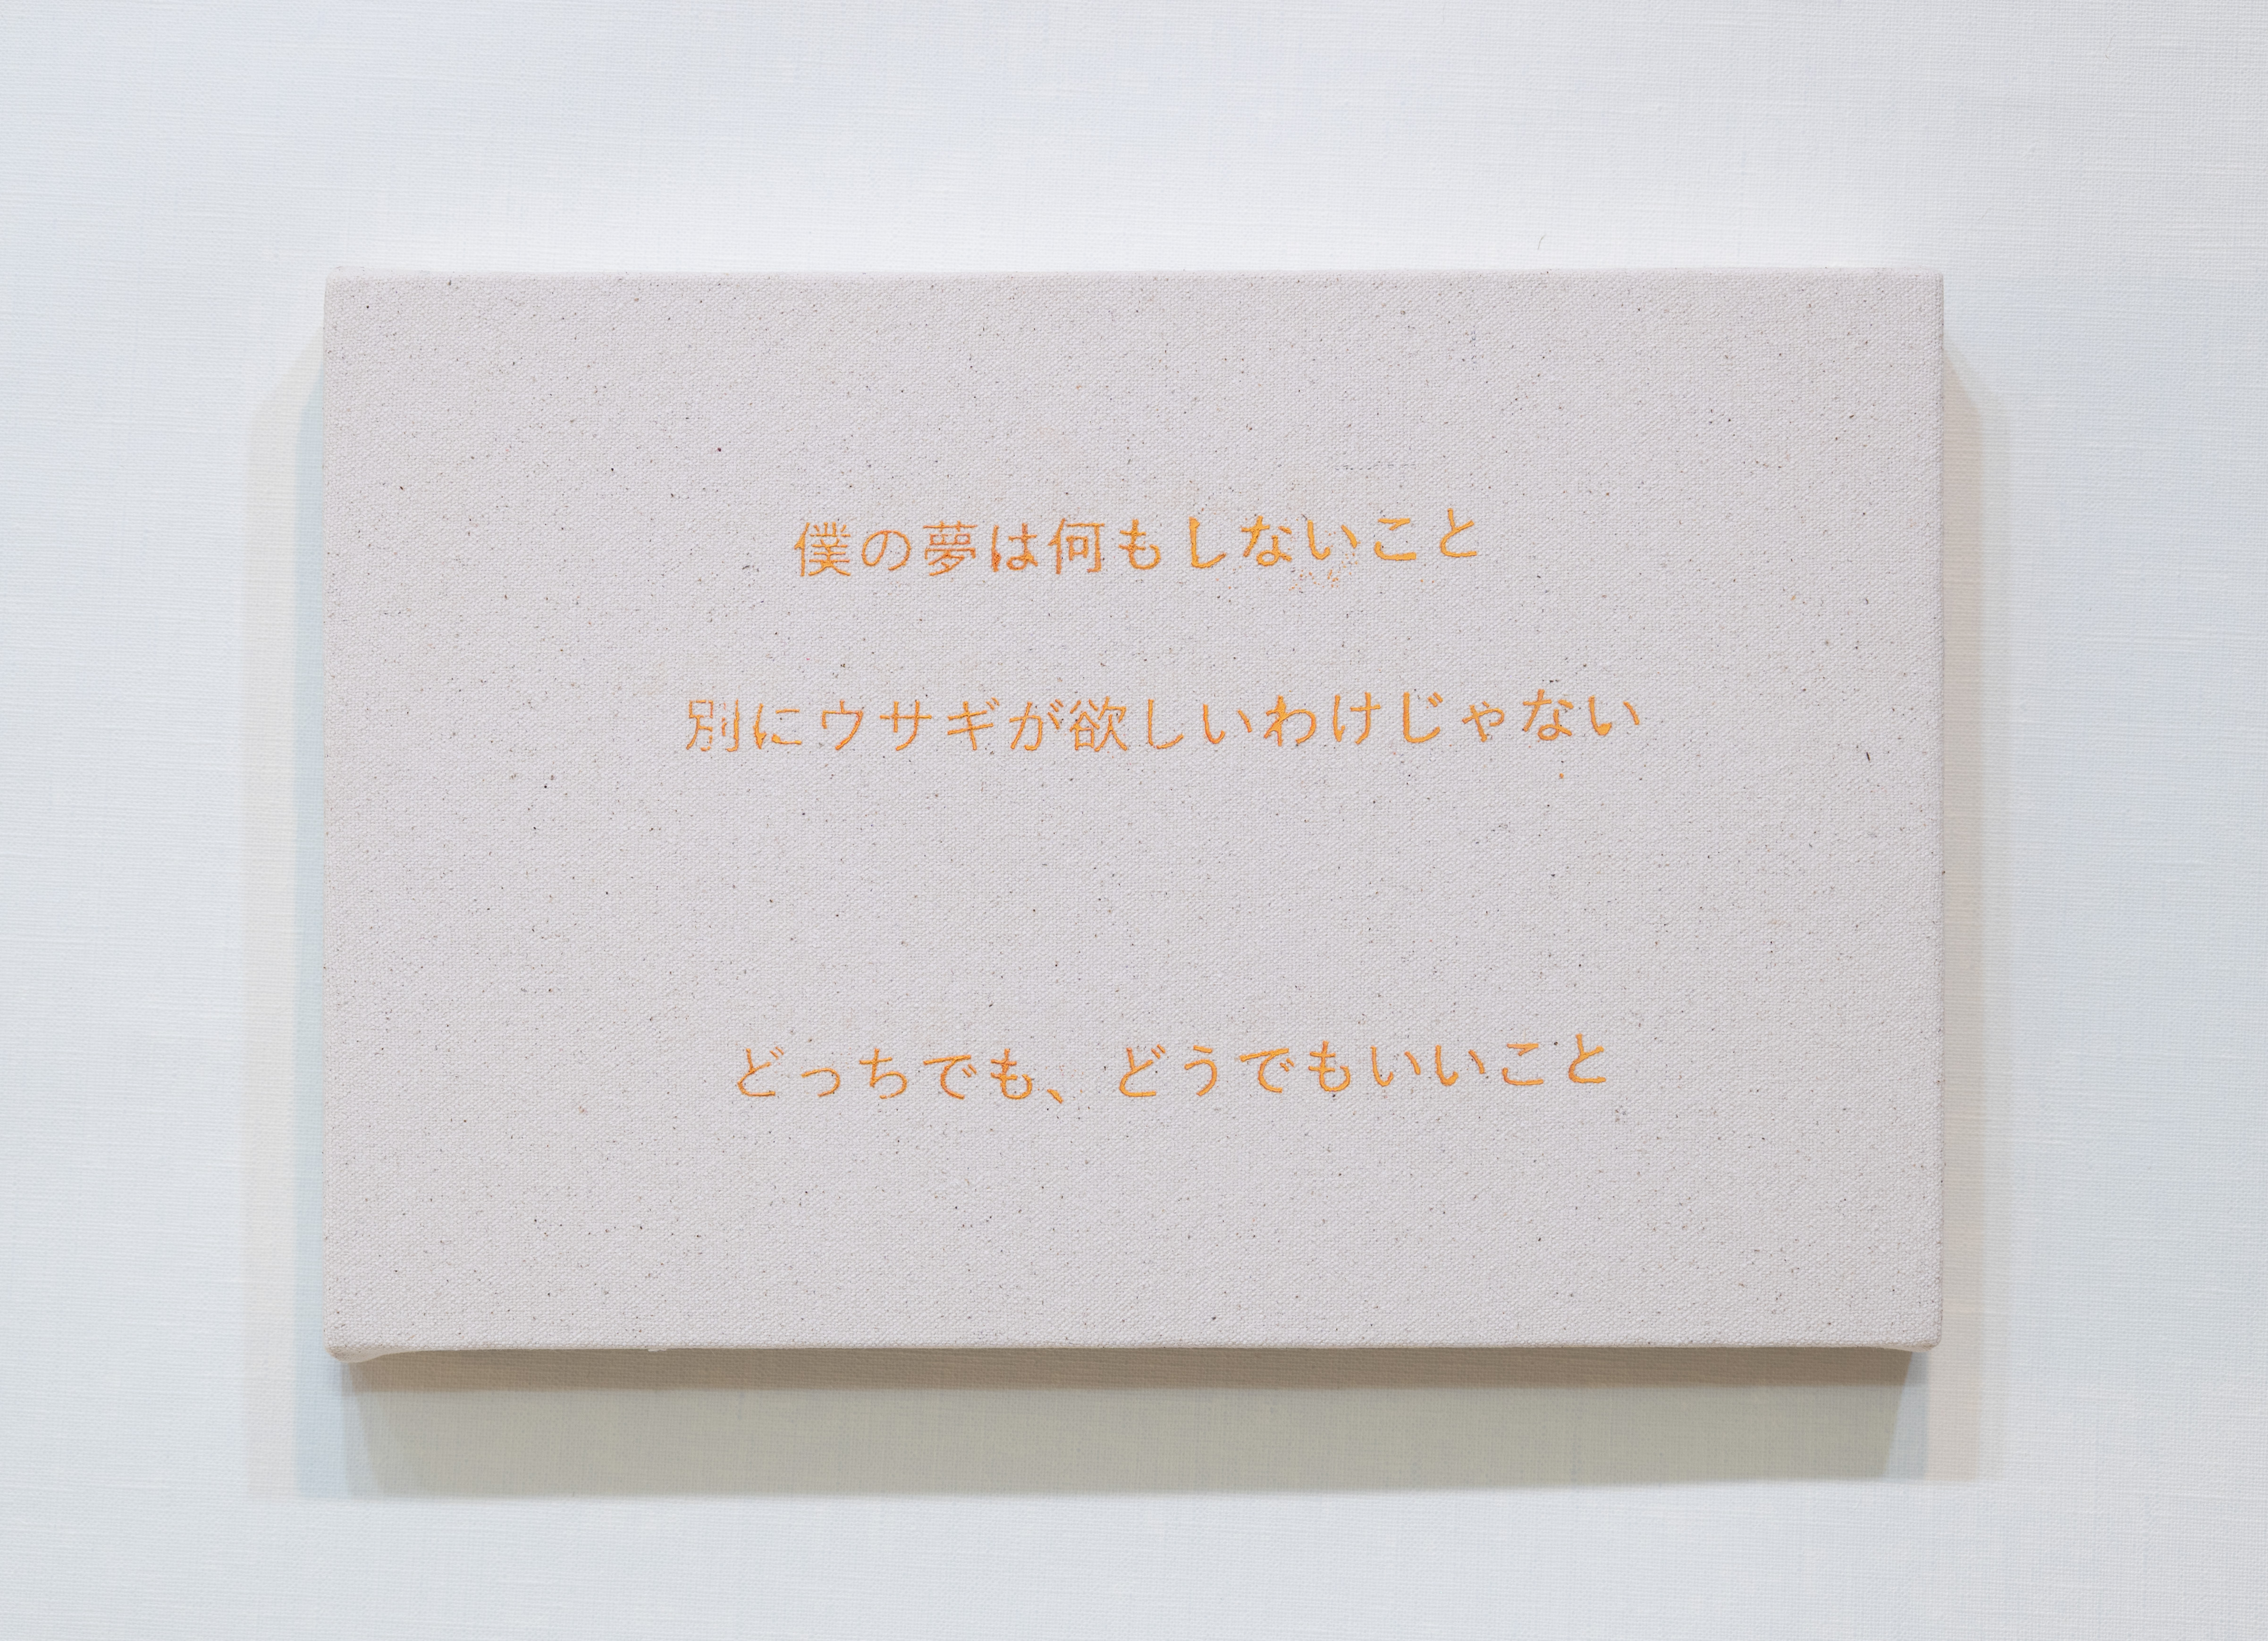 僕の夢は何もしないこと
別にウサギが欲しいわけじゃない
どっちでも、どうでもいいこと